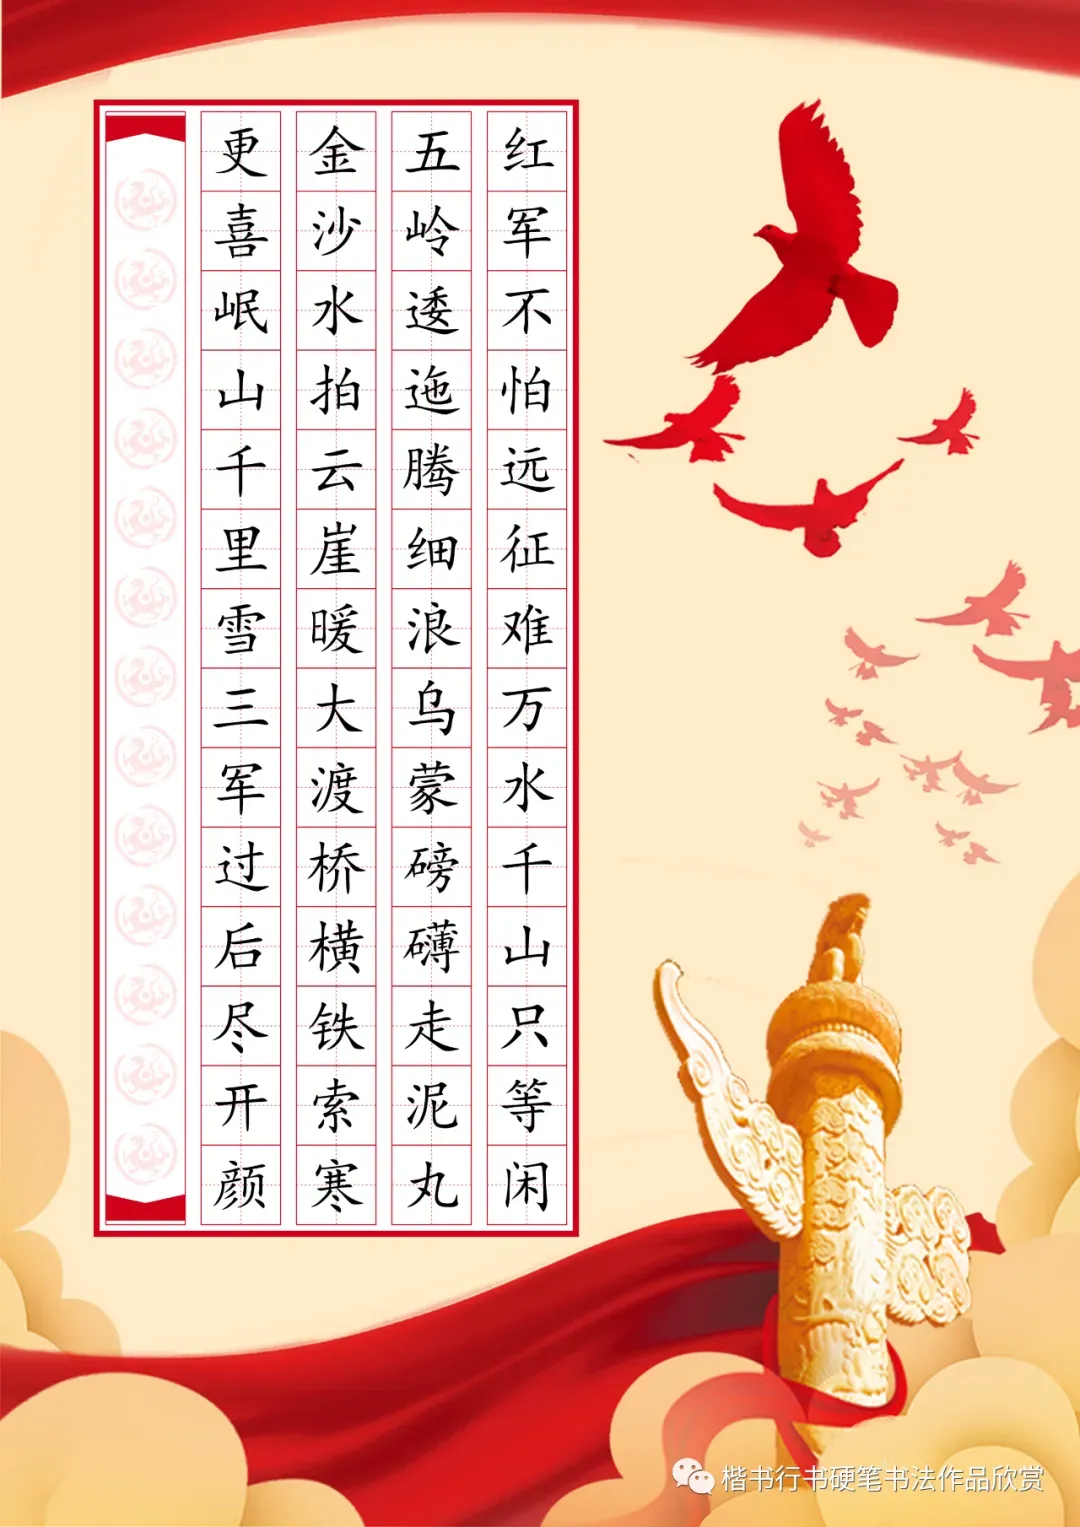 红军不怕远征难万水千山只等闲
五岭逶迤腾细浪乌蒙磅礴走泥丸
金沙水拍云崖暖大渡桥横铁索寒
更喜岷山千里雪三军过后尽开颜
楷书行书硬笔书法作品欣赏